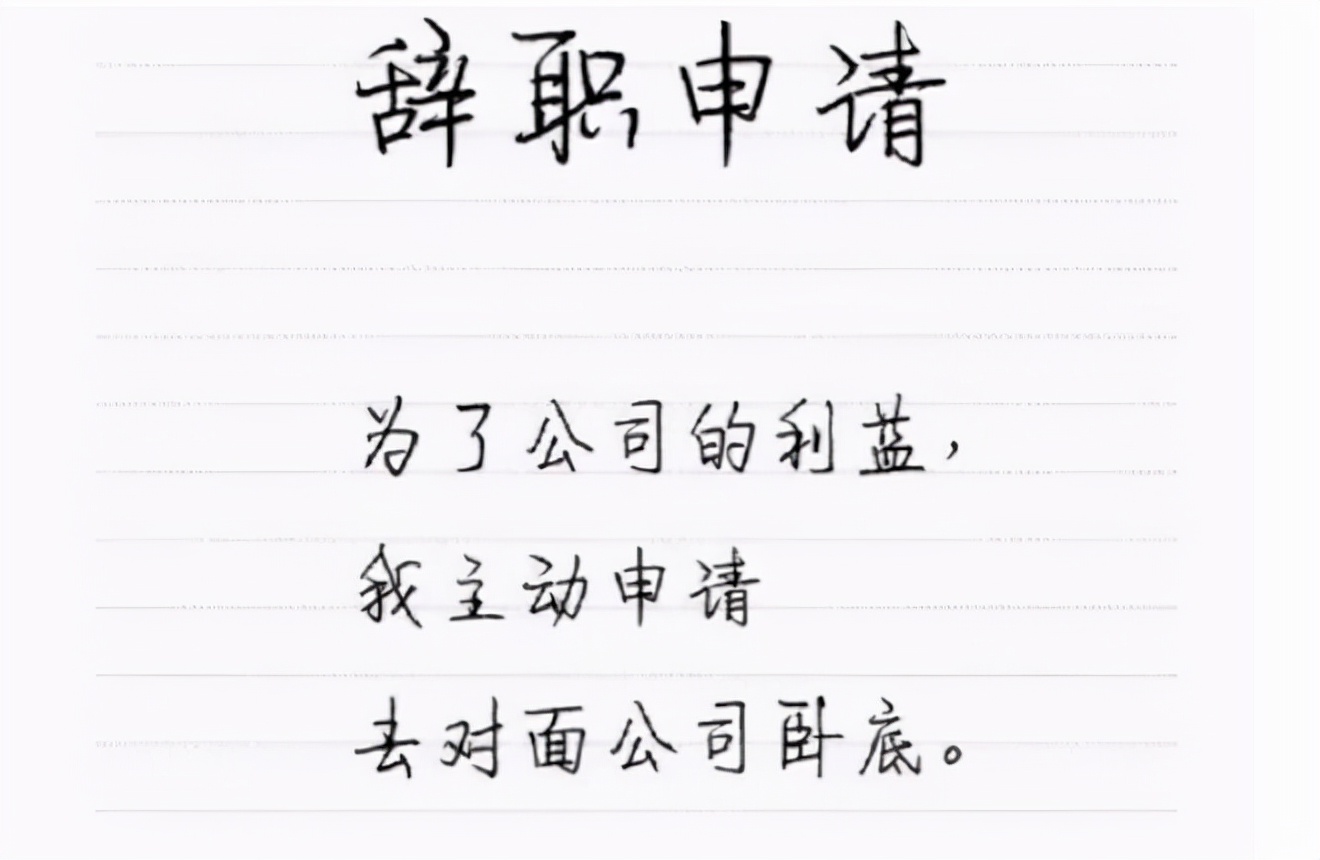 辞职申请
为了公司的利蓝,
我主动申请
去对面公司卧底。